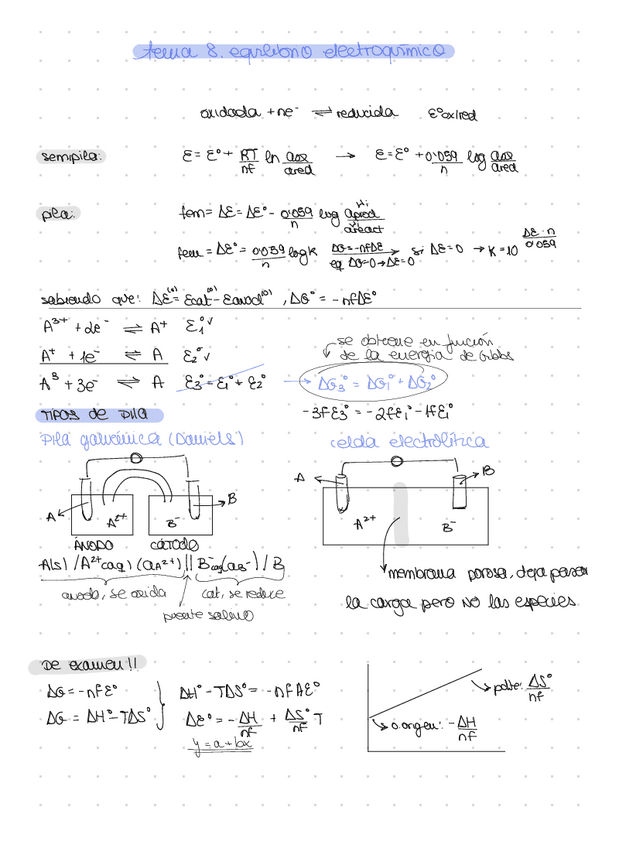 tema 8. equilibrio electroquímico
oxidada + ne⁻ ⇌ reducida ε°ox/red
semipila: ε = ε° + RT/nf ln aox/ared → ε = ε° + 0'059/n log aox/ared
pila: fem = Δε = Δε° - 0'059/n log aprod^νi/areact^νi
fem = Δε° = 0'059/n log K ΔG = -nfΔε / eq ΔG=0 → Δε=0 → si Δε = 0 → K = 10^(Δε·n/0'059)
sabiendo que: Δε⁽°⁾ = εcat⁽°⁾ - εanod⁽°⁾, ΔG° = -nfΔε°
A³⁺ + 2e⁻ ⇌ A⁺ ε₁° v
A⁺ + 1e⁻ ⇌ A ε₂° v
se obtiene en función
de la energia de Gibbs
A³ + 3e⁻ ⇌ A ε₃° = ε₁° + ε₂° → ΔG₃° = ΔG₁° + ΔG₂°
-3fε₃° = -2fε₁° - 1fε₁°
TIPOS de PILA
Pila galvánica (Daniels)
celda electrolítica
A B
A²⁺ B⁻
ÁNODO CÁTODO
A B
A²⁺ B⁻
A(s) / A²⁺(aq) (aA²⁺) || B⁻(aq) (aB⁻) / B
anodo, se oxida cat, se reduce
puente salino
membrana porosa, deja pasar
la carga pero NO las especies
De examen!!
ΔG = -nfε° ΔH° - TΔS° = -nfΔε°
ΔG = ΔH° - TΔS° Δε° = -ΔH/nf + ΔS°/nf T
y = a + bx
pdte: ΔS°/nf
o.origen: -ΔH/nf